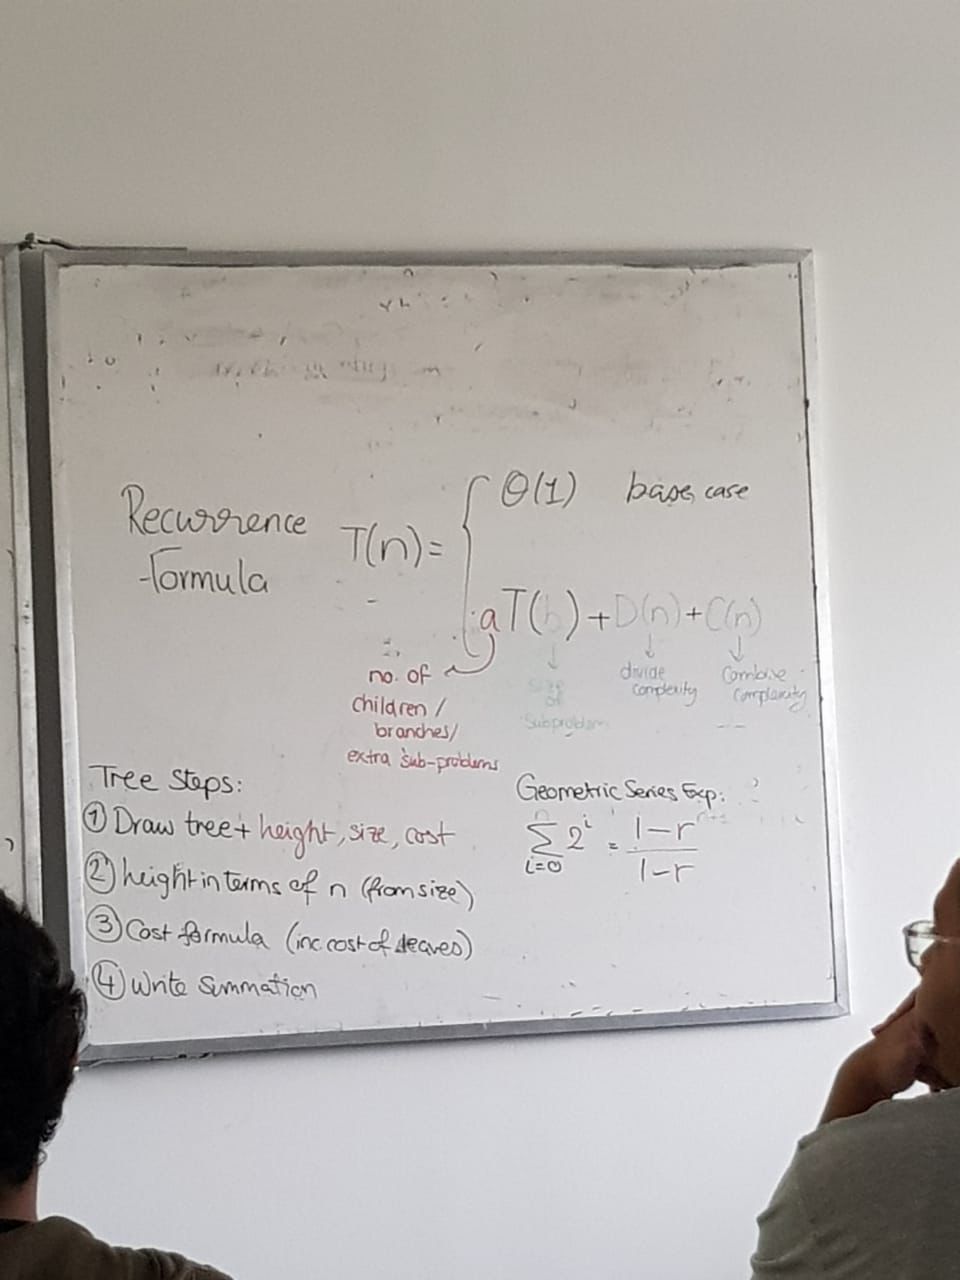 Recurrence
formula
T(n) = { Θ(1) base case
aT(b) + D(n) + C(n)
no. of
children /
branches/
extra sub-problems
size
of
subproblem
divide
complexity
combine
complexity
Tree Steps:
① Draw tree + height, size, cost
② height in terms of n (from size)
③ Cost formula (inc. cost of leaves)
④ Write summation
Geometric Series Exp:
n
∑ 2^i = (1-r^n+1)/(1-r)
i=0